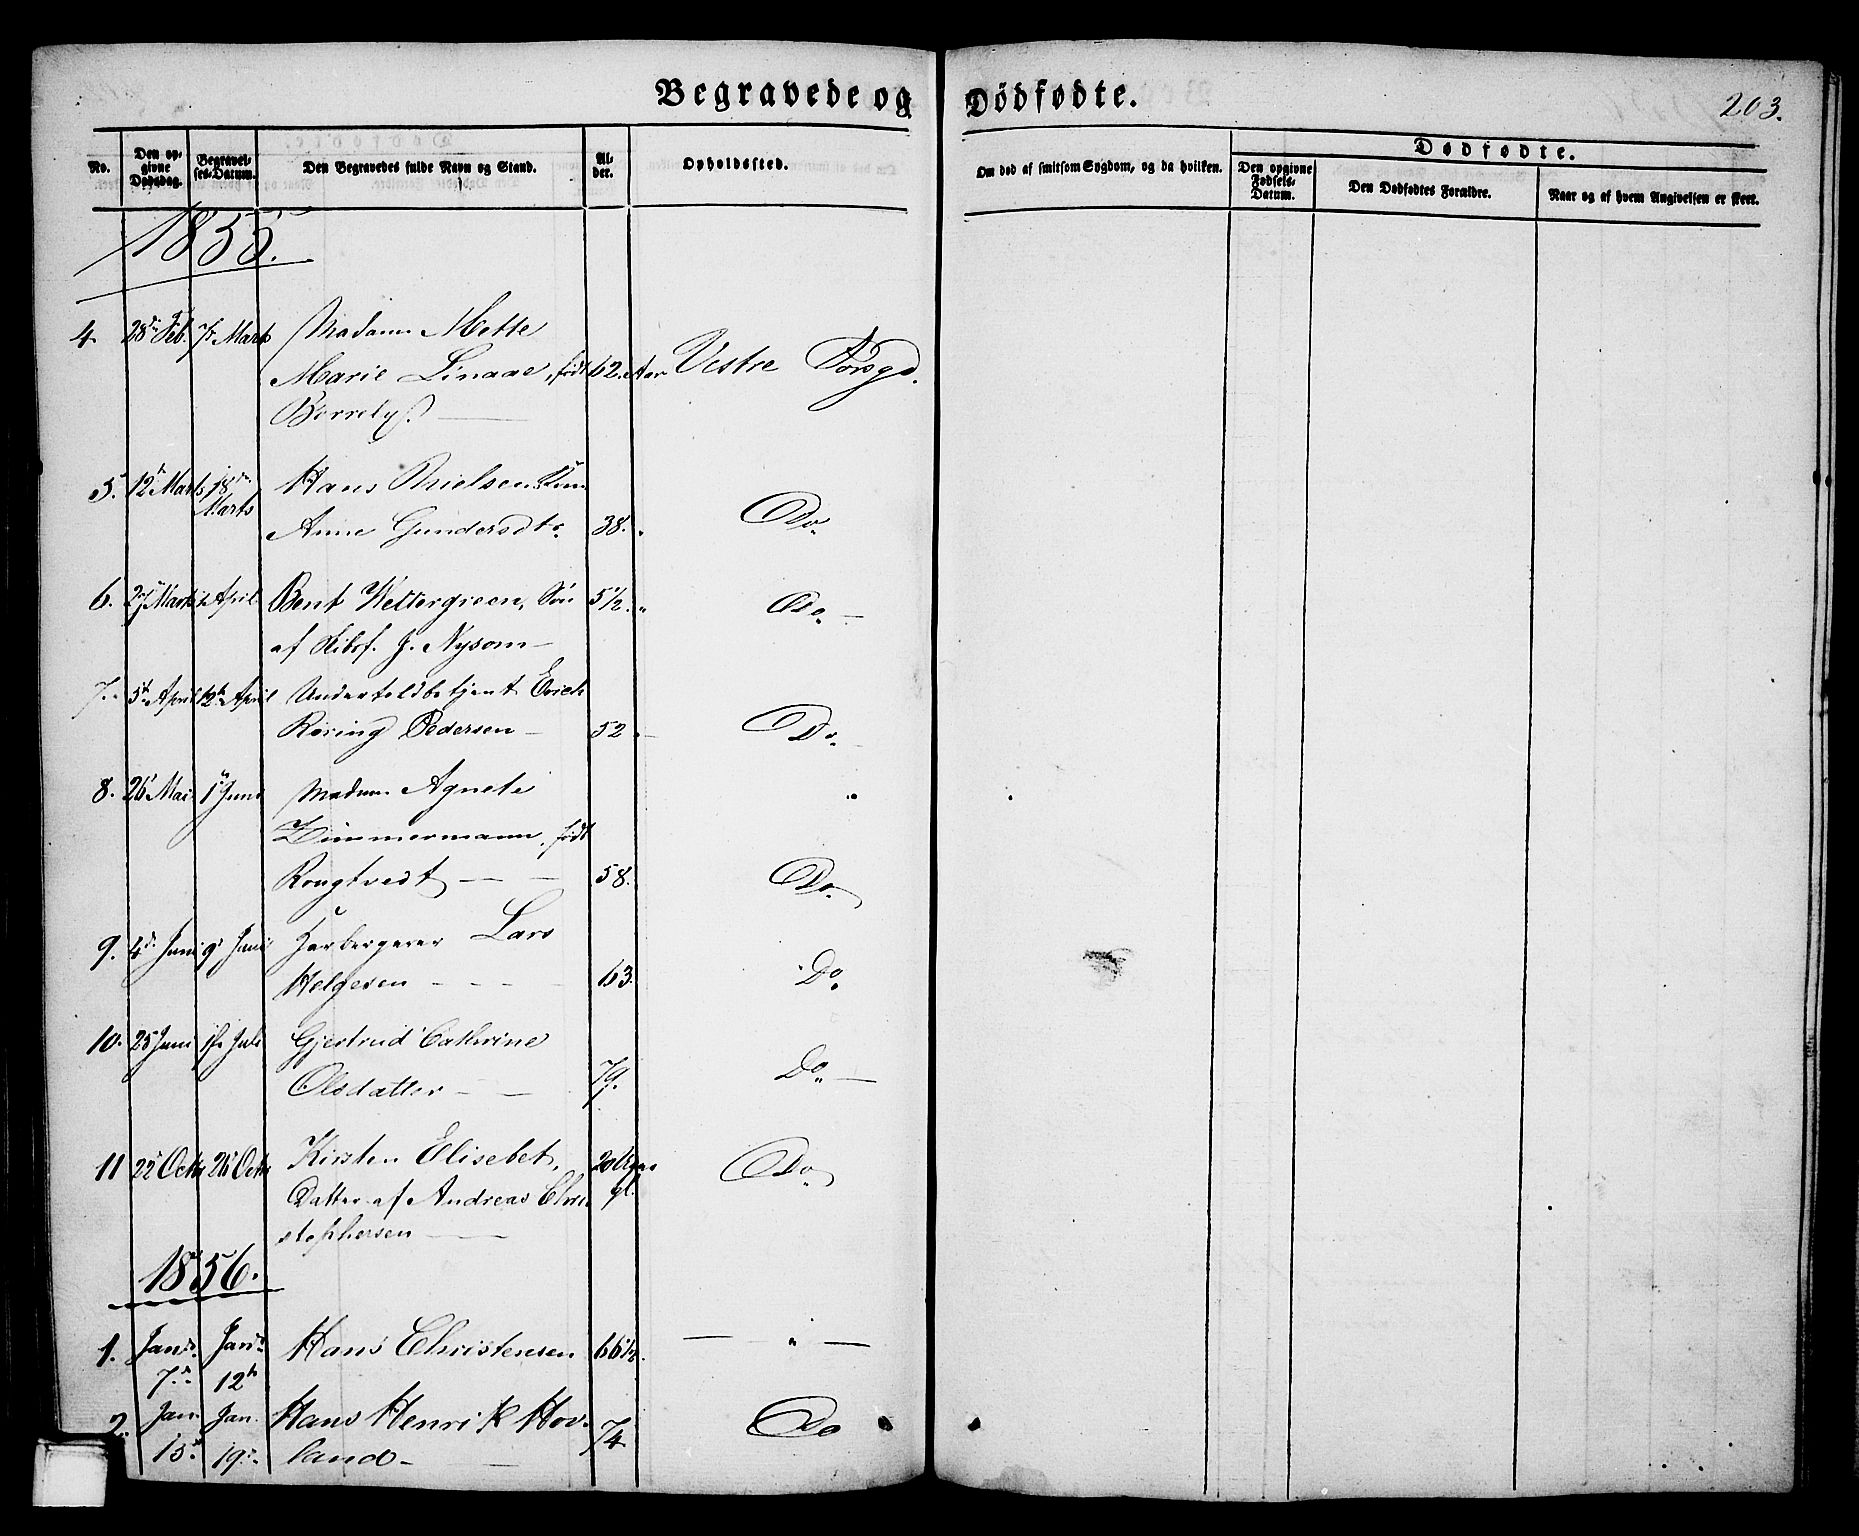 Begravede og Dödfødte.
203.
No.
Den opgivne Dødsdag.
Begravelses-Datum.
Den Begravedes fulde Navn og Stand.
Alder.
Opholdssted.
Om død af smitsom Sygdom, og da hvilken.
Dødfødte.
Den opgivne Fødsels-Datum.
Den Dødfødtes Forældre.
Naar og af hvem Angivelsen er skeet.
1855.
4. 28de Feb. 7 Marts Madam Mette
Marie Linaae, født 62 Aar Vestre Porsgd.
Borrelys.
5. 12t Marts 18de Marts Hans Nielsens Kone
Anne Gundersdtr. 38. Do.
6. 27 Marts 2 April Bent Wettergreen, Søn 5 1/2 " Do.
af Skibsf. J. Nysom
7. 5t April 12t April Undertoldbetjent Erich
Røring Pedersen 52 Do.
8. 26 Mai 1 Juni Madam Agnete
Zimmermann, født
Rongtvedt 58. Do.
9. 4de Juni 9 Juni Harbergerer Lars
Helgesen 63. Do.
10. 25 Juni 1ste Juli Gjertrud Cathrine
Olsdatter 79. Do.
11 22 Octr 26 Octr Kirsten Elisebet, 20 Uger gl. Do.
Datter af Andreas Chri
stophersen
1856.
1. Jan. 7de Jan. 12te Hans Christensen 66 1/2. "
2. Jan. 15de Jan. 19de Hans Henrik Hov-
land 74 Do